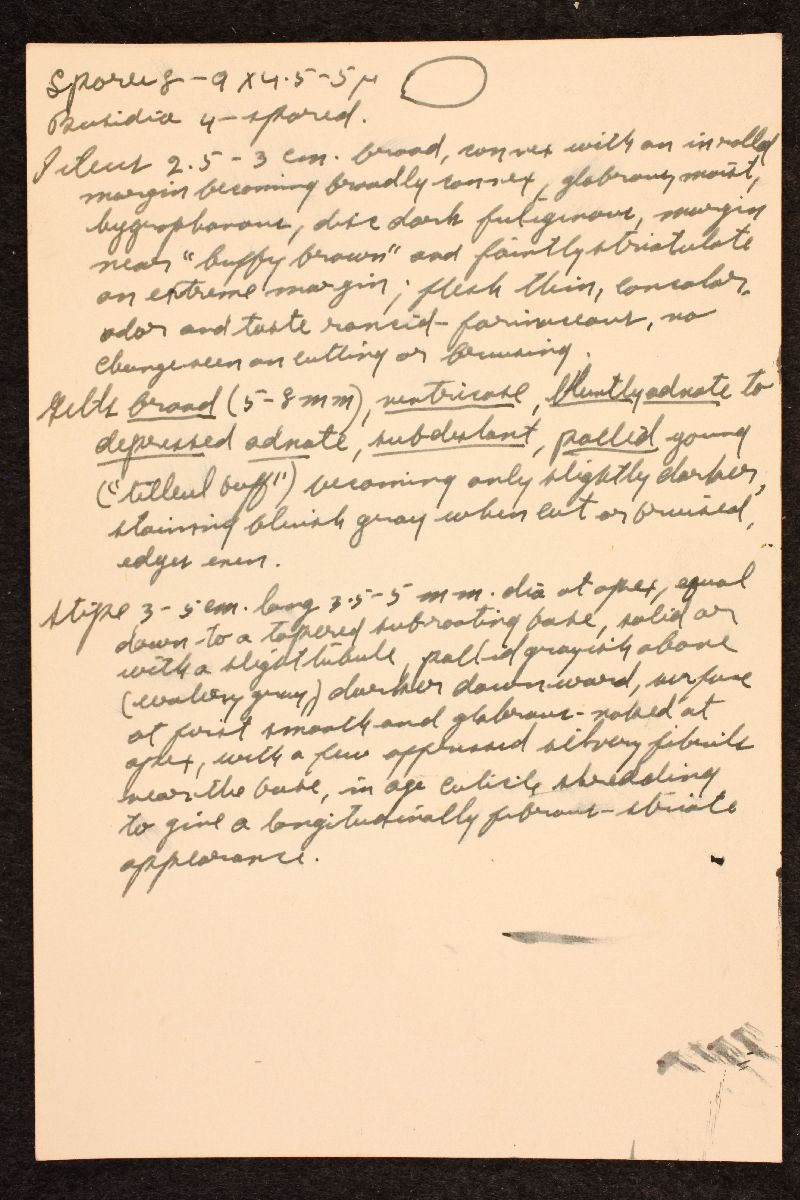 Spores 8-9 X 4.5-5µ
Basidia 4-spored.
Pileus 2.5-3 cm. broad, convex with an inrolled
margin becoming broadly convex, glabrous, moist,
hygrophanous, disc dark fuliginous, margin
near "buffy brown" and faintly striatulate
on extreme margin; flesh thin, concolor,
odor and taste rancid-farinaceous, no
change seen on cutting or bruising.
Gills broad (5-8 mm), ventricose, bluntly adnate to
depressed adnate, subdistant, pallid young
("tilleul buff") becoming only slightly darker,
staining bluish gray when cut or bruised,
edges even.
Stipe 3-5 cm. long 3.5-5 mm. dia at apex, equal
down to a tapered subrooting base, solid or
with a slight tubule, pallid grayish above
darker downward, surface
at first smooth and glabrous-naked at
apex, with a few appressed silvery fibrils
near the base, in age cuticle shredding
to give a longitudinally fibrous-striate
appearance.